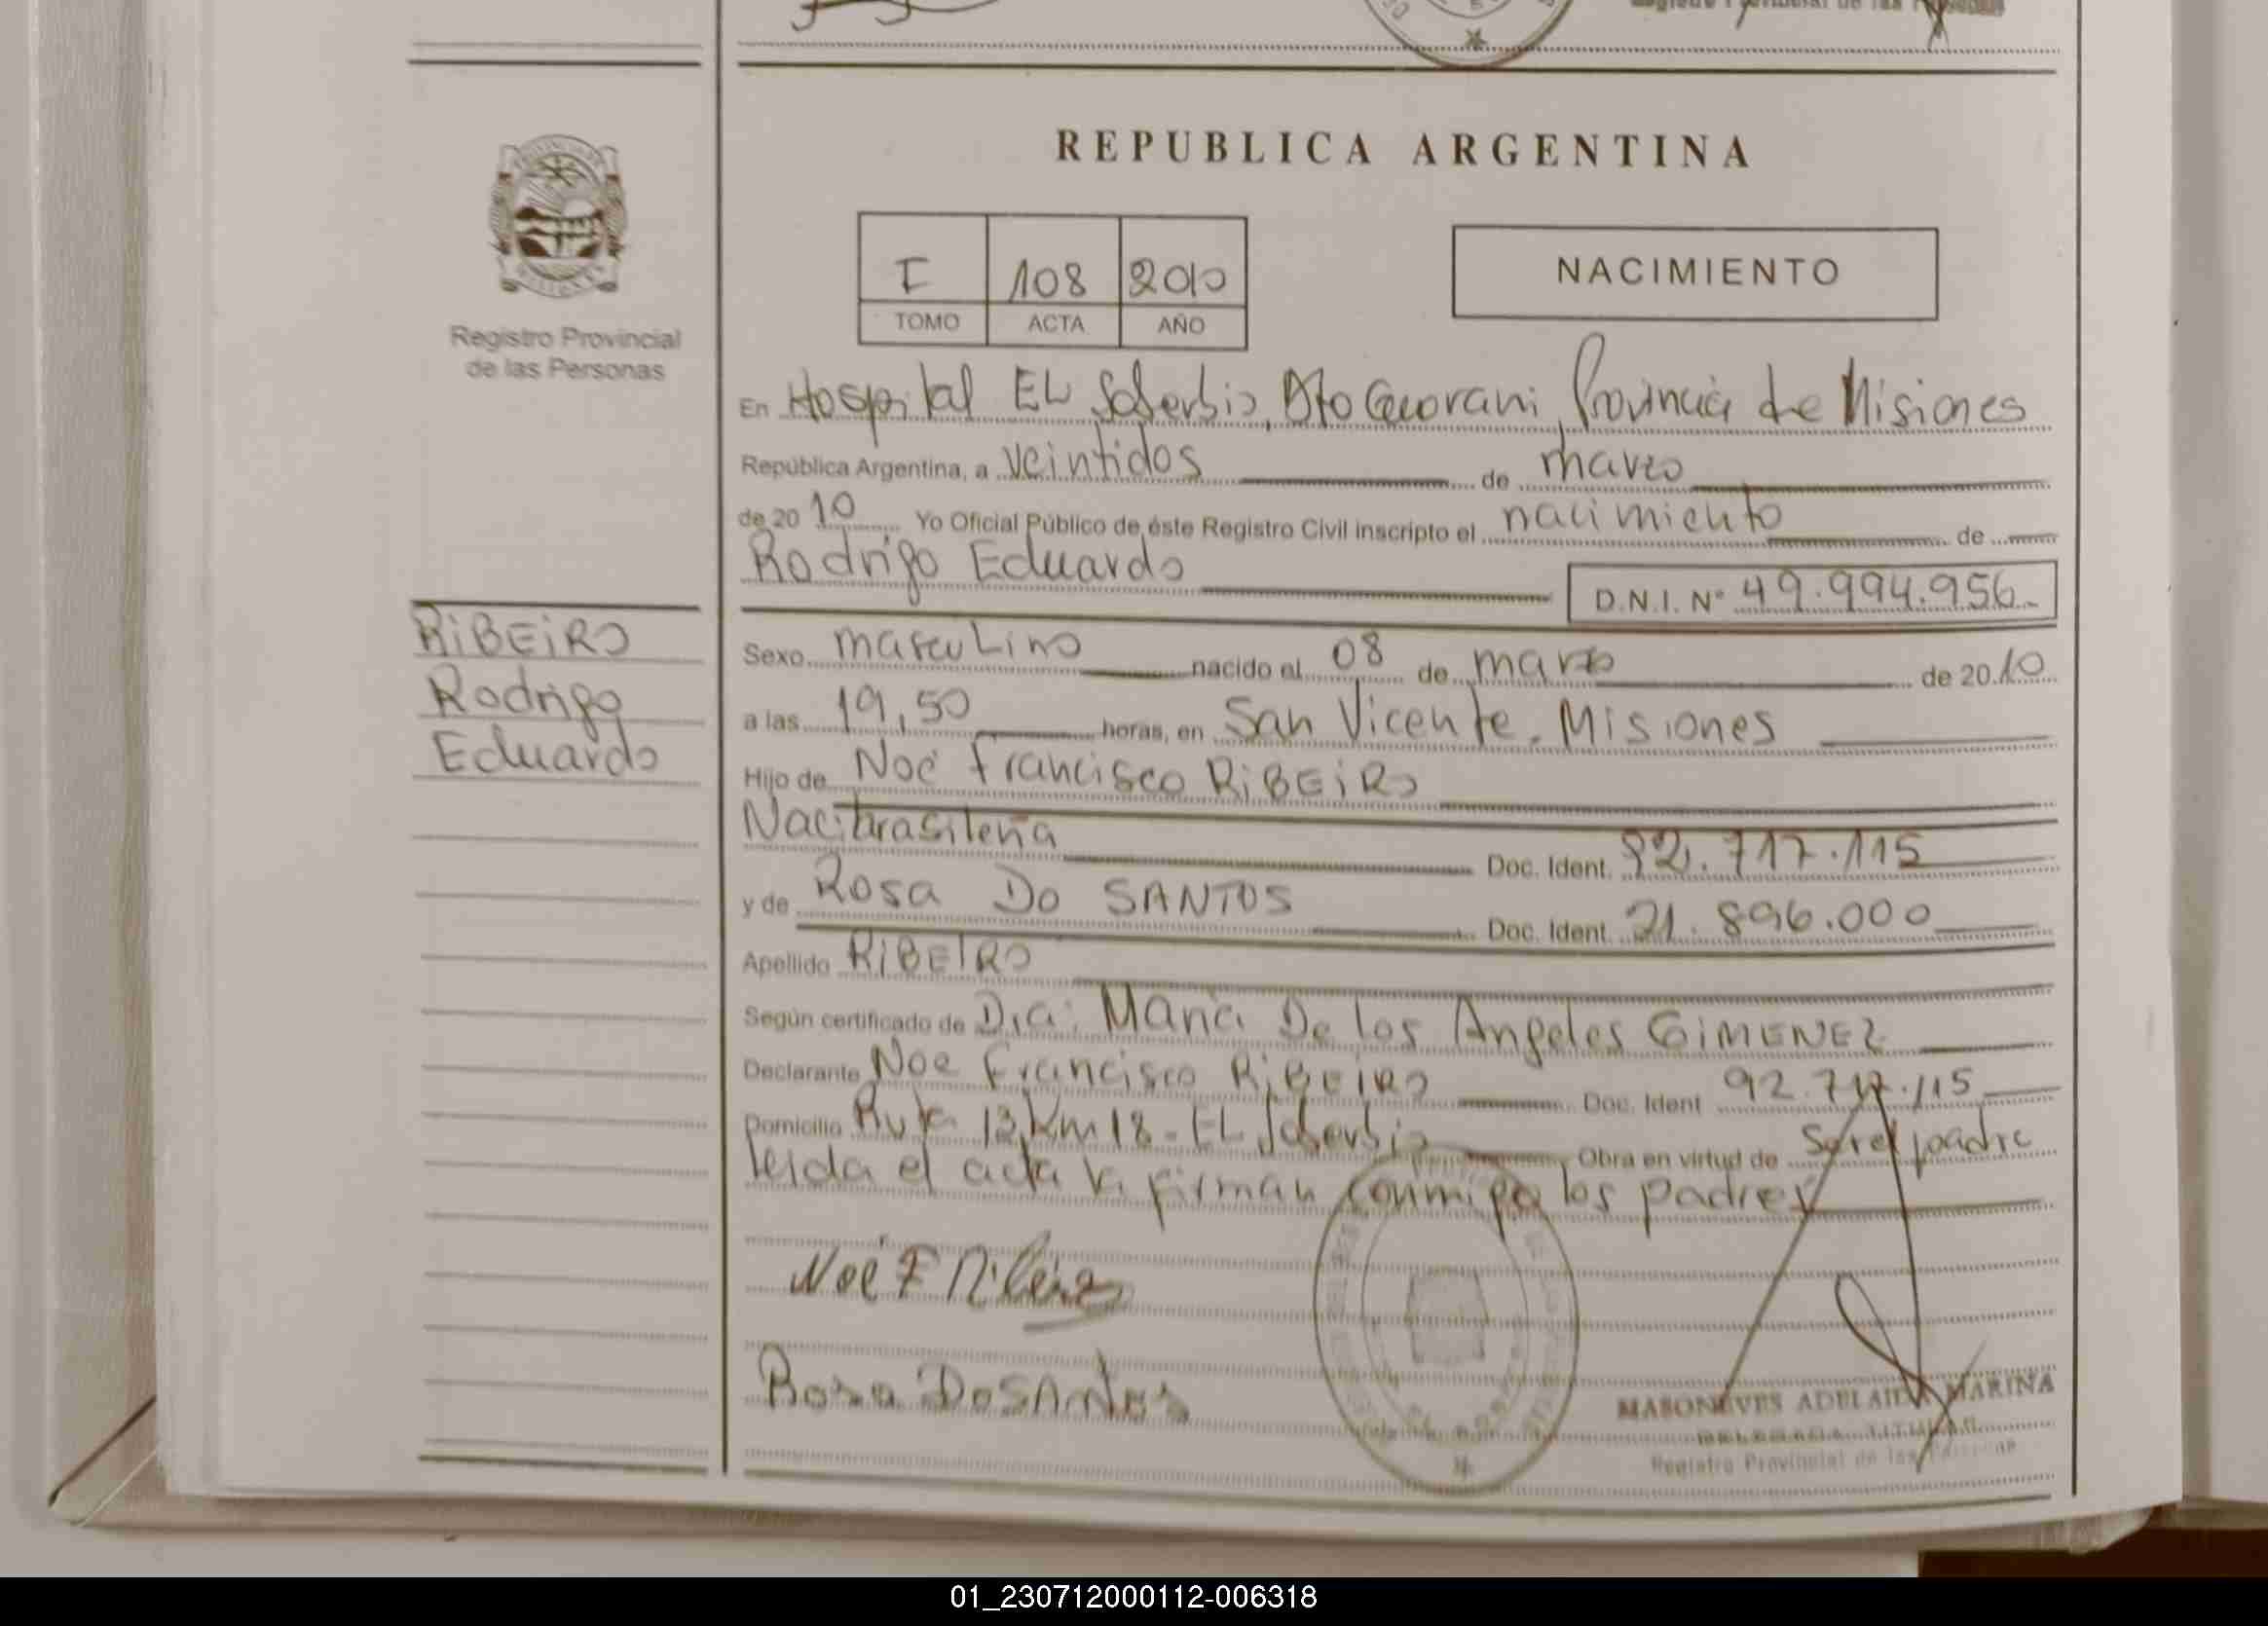 REPUBLICA ARGENTINA
I 108 2010
TOMO ACTA AÑO
NACIMIENTO
Registro Provincial
de las Personas
En Hospital EL Soberbio, Dto Guarani, Provincia de Misiones
República Argentina, a veintidos de marzo
de 20 10 Yo Oficial Público de éste Registro Civil inscripto el nacimiento de
Rodrigo Eduardo D.N.I. Nº 49.994.956
RiBEiRO
Rodrigo
Eduardo
Sexo masculino nacido el 08 de marzo de 20 10
a las 19,50 horas, en San Vicente, Misiones
Hijo de Noé Francisco RiBEiRO
Nac. brasileña Doc. Ident. 92.717.115
y de Rosa Do SANTOS Doc. Ident. 21.896.000
Apellido RiBEIRO
Según certificado de Dra. Maria De los Angeles GiMENEZ
Declarante Noe Francisco RiBEIRO Doc. Ident 92.717.115
Domicilio Ruta 13 Km 18 - EL Soberbio Obra en virtud de Ser el padre
leida el acta la firman conmigo los padres
Noé F Ribeiro
Rosa DoSAntos
MASONEVES ADELAIDA MARINA
DELEGADA TITULAR
Registro Provincial de las Personas
01_230712000112-006318